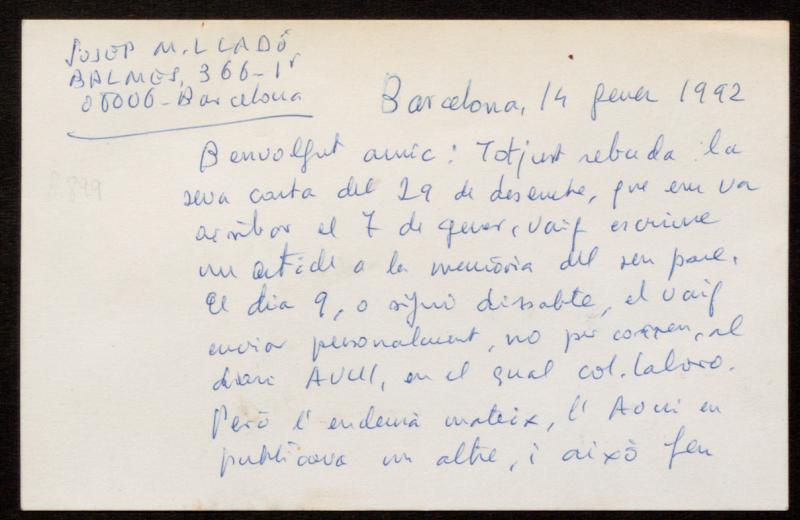 JOSEP M. LLADÓ
BALMES, 366-1r
08006-Barcelona
Barcelona, 14 gener 1992
Benvolgut amic: Totjust rebuda la
seva carta del 29 de desembre, que em va
arribar el 7 de gener, vaig escriure
un article a la memòria del seu pare.
El dia 9, o sigui dissabte, el vaig
enviar personalment, no per correu, al
diari AVUI, en el qual col.laboro.
Però l'endemà mateix, l'Avui en
publicava un altre, i això feu